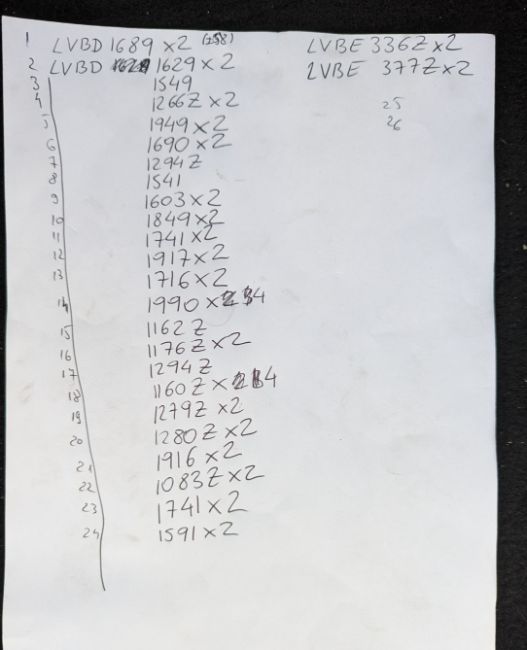 1 LVBD 1689 x2 (258)
2 LVBD 1629 x2
3 1549
4 1266Z x2
5 1949 x2
6 1690 x2
7 1294 Z
8 1541
9 1603 x2
10 1849 x2
11 1741 x2
12 1917 x2
13 1716 x2
14 1990 x 4
15 1162 Z
16 1176Z x2
17 1294 Z
18 1160Z x 4
19 1279Z x2
20 1280Z x2
21 1916 x2
22 1083Z x2
23 1741 x2
24 1591 x2
LVBE 336Z x2
LVBE 377Z x2
25
26